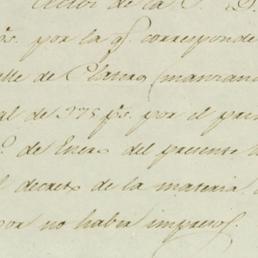 de la
por la q. corresponde
lle de Platero (manzan
al de 375 p.s por el pri
de Enero del presente
decreto de la materia
por no haber impresos.